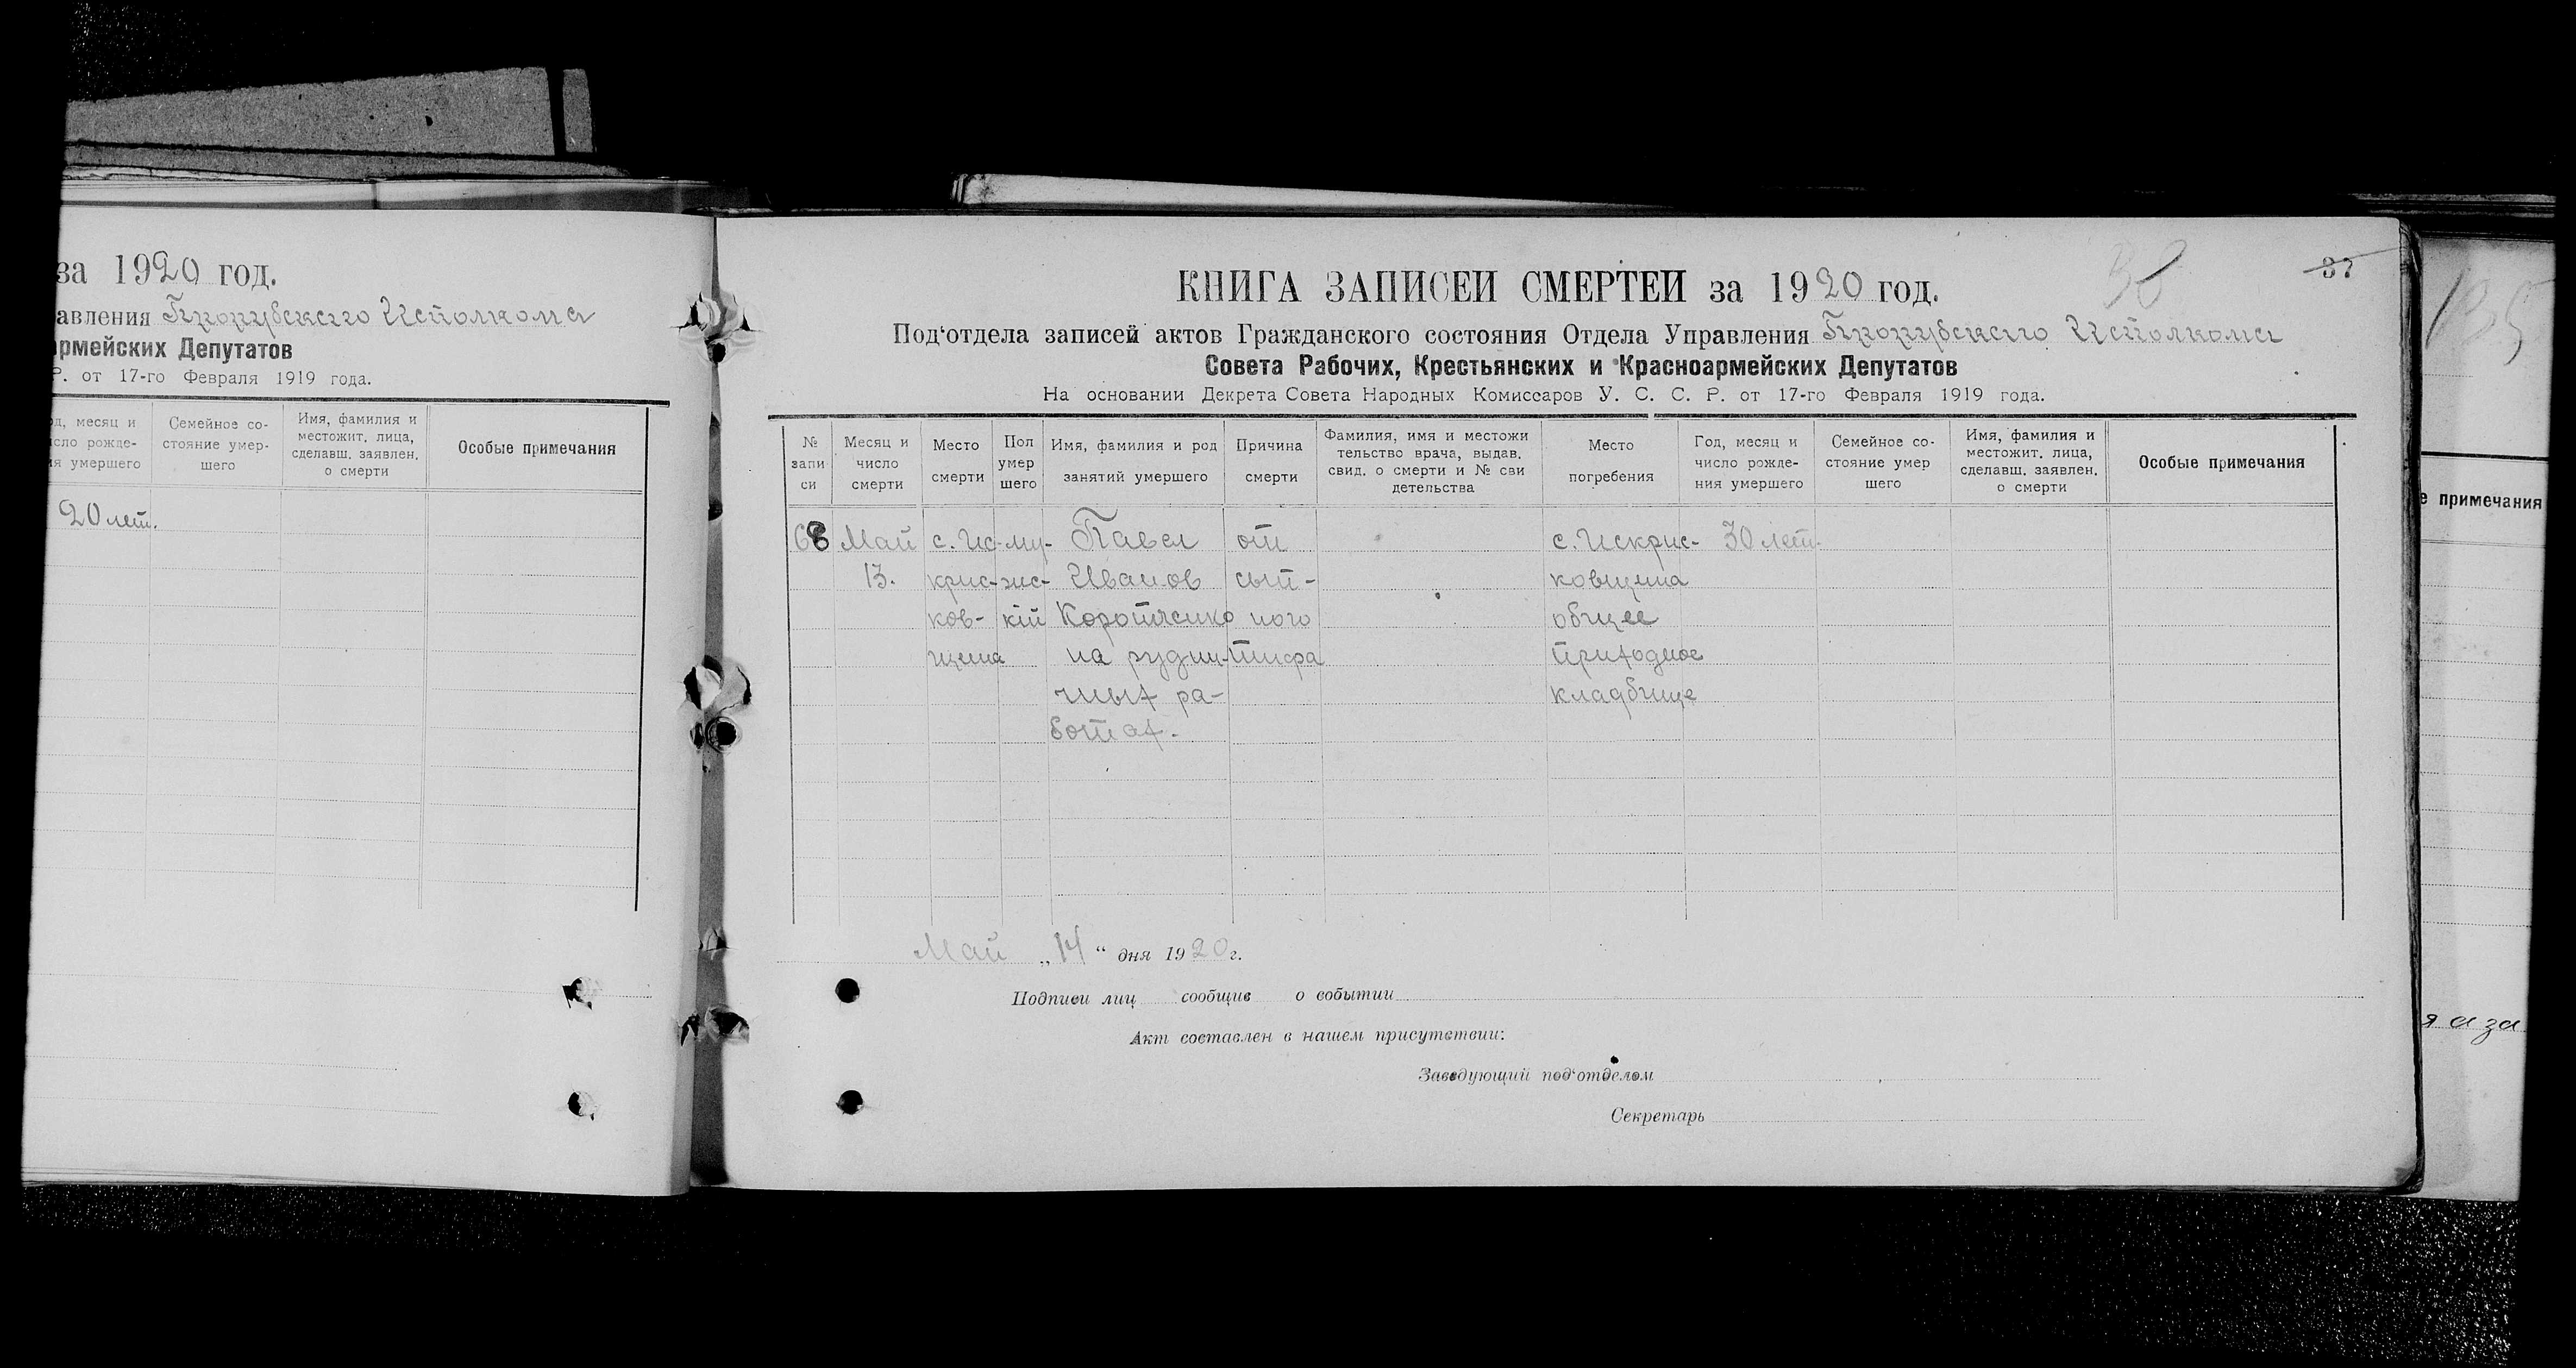 за 1920 год.
авления Исполкома
армейских Депутатов
Р. от 17-го Февраля 1919 года.
од, месяц и
исло рожде-
ия умершего
Семейное со-
стояние умер-
шего
Имя, фамилия и
местожит. лица,
сделавш. заявлен.
о смерти
Особые примечания
20 лет.
38
37
КНИГА ЗАПИСЕЙ СМЕРТЕЙ за 1920 год.
Под'отдела записей актов Гражданского состояния Отдела Управления Исполкома
Совета Рабочих, Крестьянских и Красноармейских Депутатов
На основании Декрета Совета Народных Комиссаров У. С. С. Р. от 17-го Февраля 1919 года.
№
запи
си
Месяц и
число
смерти
Место
смерти
Пол
умер
шего
Имя, фамилия и род
занятий умершего
Причина
смерти
Фамилия, имя и местожи
тельство врача, выдав.
свид. о смерти и № сви
детельства
Место
погребения
Год, месяц и
число рожде-
ния умершего
Семейное со-
стояние умер
шего
Имя, фамилия и
местожит. лица,
сделавш. заявлен.
о смерти
Особые примечания
68
Май
13.
с. Ис-
крис-
ков-
щина
му-
жс-
кій
Павел
Иванов
Коротченко
на рудни-
чных ра-
ботах.
от
сып-
ного
тифа
с. Искрис-
ковщина
общее
приходное
кладбище
30 лет.
Май „14“ дня 1920 г.
Подписи лиц сообщив о событии
Акт составлен в нашем присутствии:
Заведующий под'отделом
Секретарь
135
е примечания
я а за